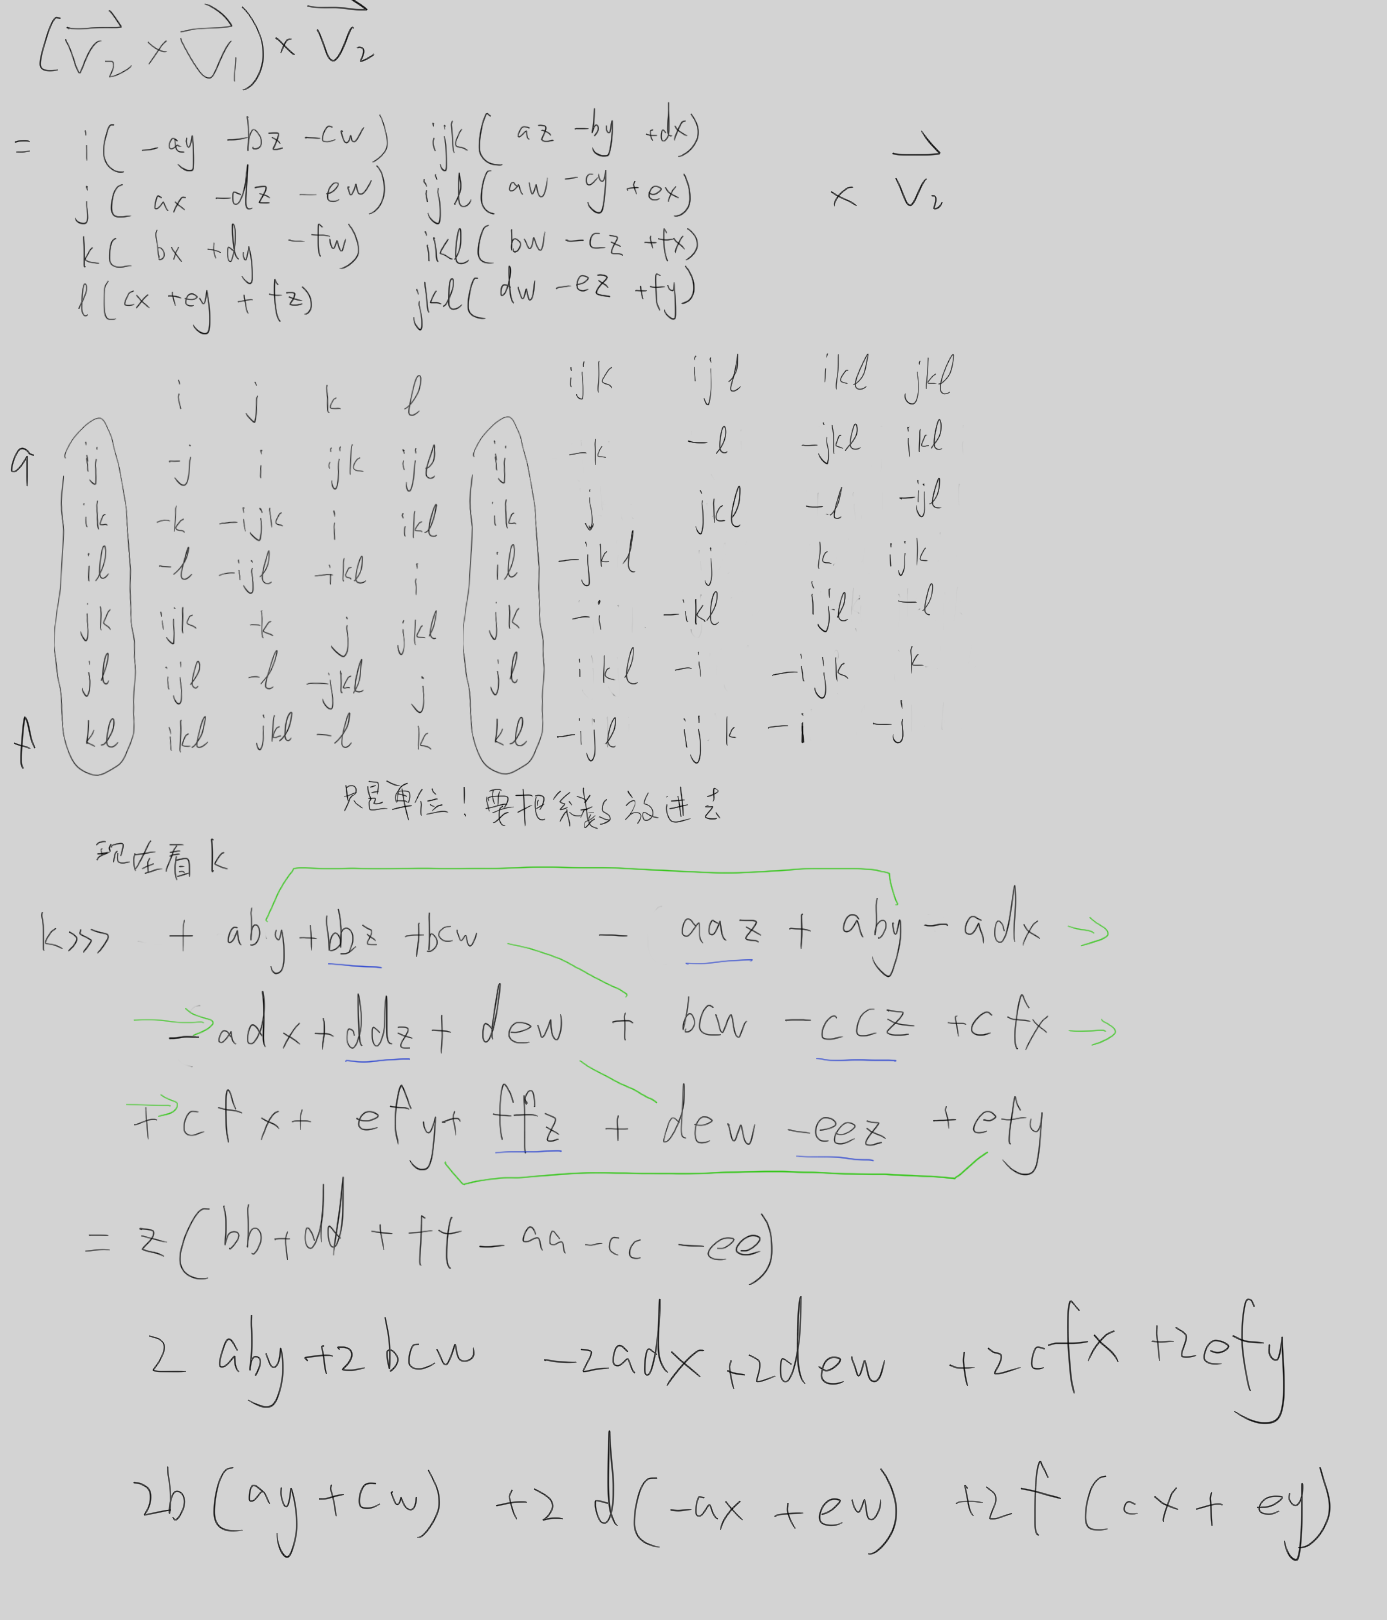 (V₂ × V₁) × V₂
= i(-ay -bz -cw) ijk(az -by +dx)
j(ax -dz -ew) ijl(aw -cy +ex) × V₂
k(bx +dy -fw) ikl(bw -cz +fx)
l(cx +ey +fz) jkl(dw -ez +fy)
i j k l ijk ijl ikl jkl
a ij -j i ijk ijl ij -k -l -jkl ikl
ik -k -ijk i ikl ik j jkl -l -ijl
il -l -ijl -ikl i il -jkl j k ijk
jk ijk -k j jkl jk -i -ikl ijl -l
jl ijl -l -jkl j jl ikl -i -ijk k
f kl ikl jkl -l k kl -ijl ijk -i -j
只是单位！要把系数放进去
现在看k
k>>> + aby +bbz +bcw - aaz + aby - adx →
→ -adx + ddz + dew + bcw - ccz + cfx →
→ +cfx + efy + ffz + dew -eez + efy
= z(bb+dd+ff-aa-cc-ee)
2aby +2bcw -2adx +2dew +2cfx +2efy
2b(ay+cw) +2d(-ax+ew) +2f(cx+ey)